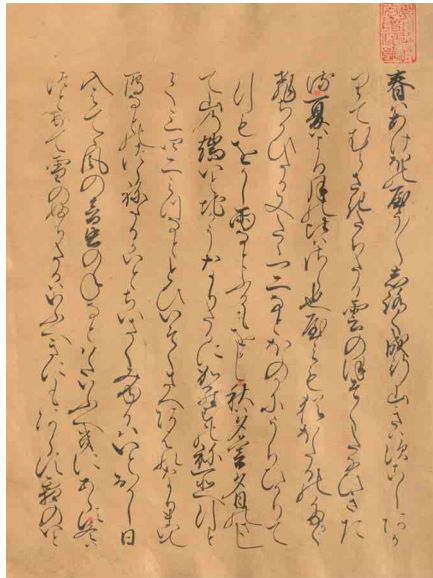 春はあけほのやう／＼志路く成行山きは須こしあか
りてむらさきたちたる雲の保そくたなひきた
る夏はよる月の比はさら也屋みも猶ほたるの多く
飛ちかひたる又たゝ一二なとほのかにうちひかりて
行もをかし雨なとふるもをかし秋は夕暮夕日のさし
て山乃端いと近うなりたるに烏の祢所へ行と
て三四二みつなととひいそくさへあはれなりまいて
雁なとのつら祢たるかいとちいさく見ゆるはいとをかし日
入はてて風の音虫のねなとはたいふへきにあらす冬は
つとめて雪のふりたるはいふへきにもあらす霜のいと